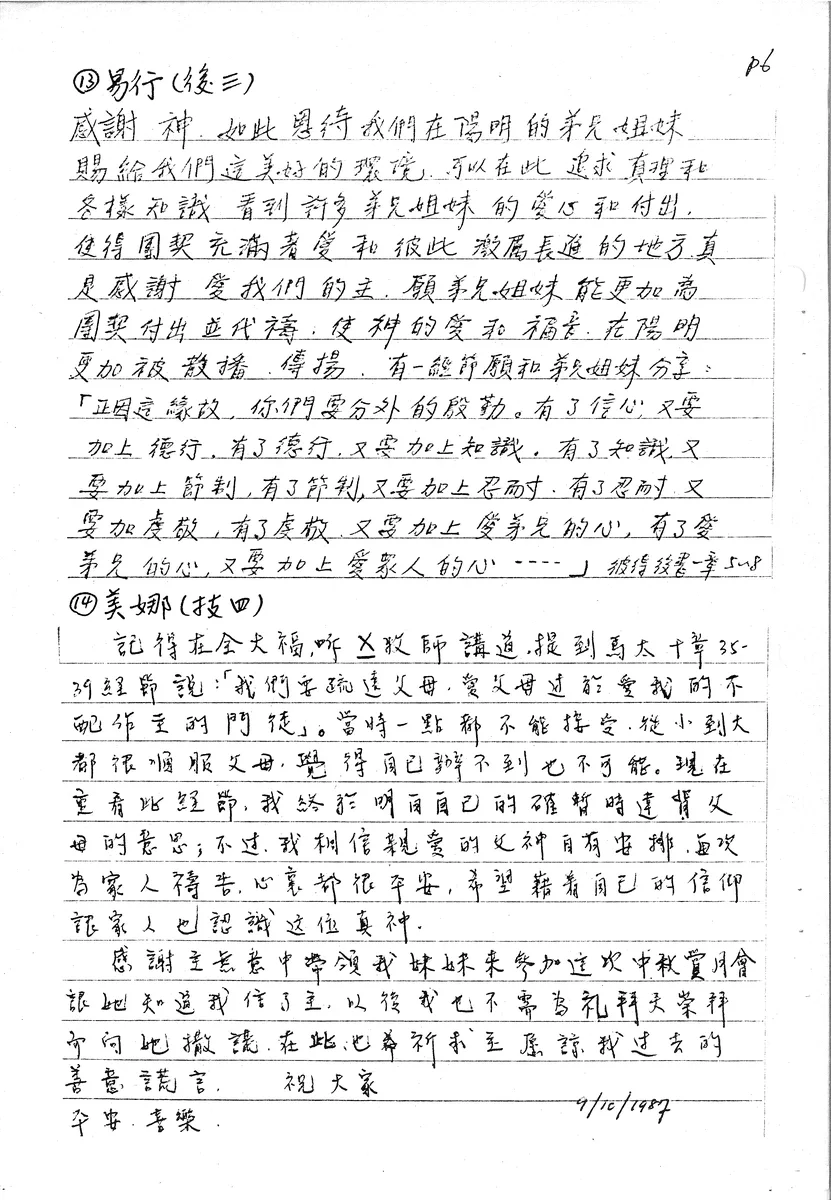 p6
⑬易行(後三)
感謝 神.如此恩待我們在陽明的弟兄姐妹
賜給我們這美好的環境.可以在此 追求真理和
各樣知識 看到許多弟兄姐妹 的愛心和付出.
使得團契充滿著愛 和 彼此 激厲長進的地方真
是感謝 愛我們的主.願弟兄姐妹能更加為
團契付出並代禱.使神的愛和福音.在陽明
更加被散播.傳揚.有一經節願和弟兄姐妹分享:
「正因這緣故,你們要分外的殷勤。有了信心,又要
加上德行.有了德行.又要加上知識.有了知識,又
要加上節制,有了節制,又要加上忍耐.有了忍耐.又
要加虔敬,有了虔敬.又要加上愛弟兄的心,有了愛
弟兄的心,又要加上愛眾人的心----」彼得後書一章5~8
⑭美娜(技四)
記得在全大福,听X牧師講道,提到馬太十章35-
39經節說:「我們要疏遠父母.愛父母过於愛我的不
配作主的門徒」。當時一點都不能接受.從小到大
都很順服父母.覺得自己辦不到也不可能。現在
重看此經節,我終於明白自己的確暫時違背父
母的意思;不过.我相信親愛的父神自有安排.每次
為家人禱告.心裏都很平安,希望藉着自己的信仰
讓家人也認識这位真神.
感謝主無意中帶領我妹妹来參加這次中秋賞月會
讓她知道我信了主.以後我也不需為礼拜天榮拜
而向她撒謊.在此,也希祈求主原諒我过去的
善意謊言. 祝大家
平安.喜樂.
9/10/1987